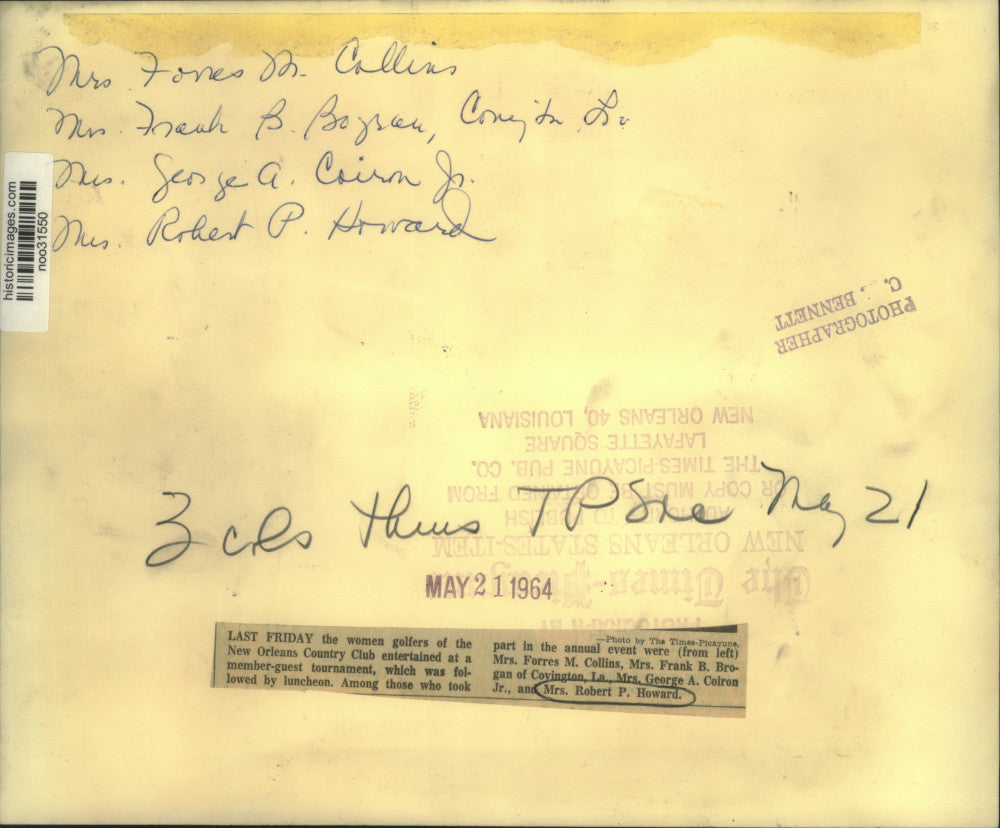 Mrs Forres M. Collins
Mrs. Frank B. Brogan, Covington, La.
Mrs. George A. Coiron Jr.
Mrs. Robert P. Howard
historicimages.com
noo31550
PHOTOGRAPHER
C. . BENNETT
NEW ORLEANS 40, LOUISIANA
LAFAYETTE SQUARE
THE TIMES-PICAYUNE PUB. CO.
OR COPY MUST BE OBTAINED FROM
TO PUBLISH
NEW ORLEANS STATES-ITEM
The Times-Picayune
PHOTOGRAPH BY
3 cols Thurs TP Soc May 21
MAY 21 1964
LAST FRIDAY the women golfers of the
New Orleans Country Club entertained at a
member-guest tournament, which was fol-
lowed by luncheon. Among those who took
—Photo by The Times-Picayune.
part in the annual event were (from left)
Mrs. Forres M. Collins, Mrs. Frank B. Bro-
gan of Covington, La., Mrs. George A. Coiron
Jr., and Mrs. Robert P. Howard.